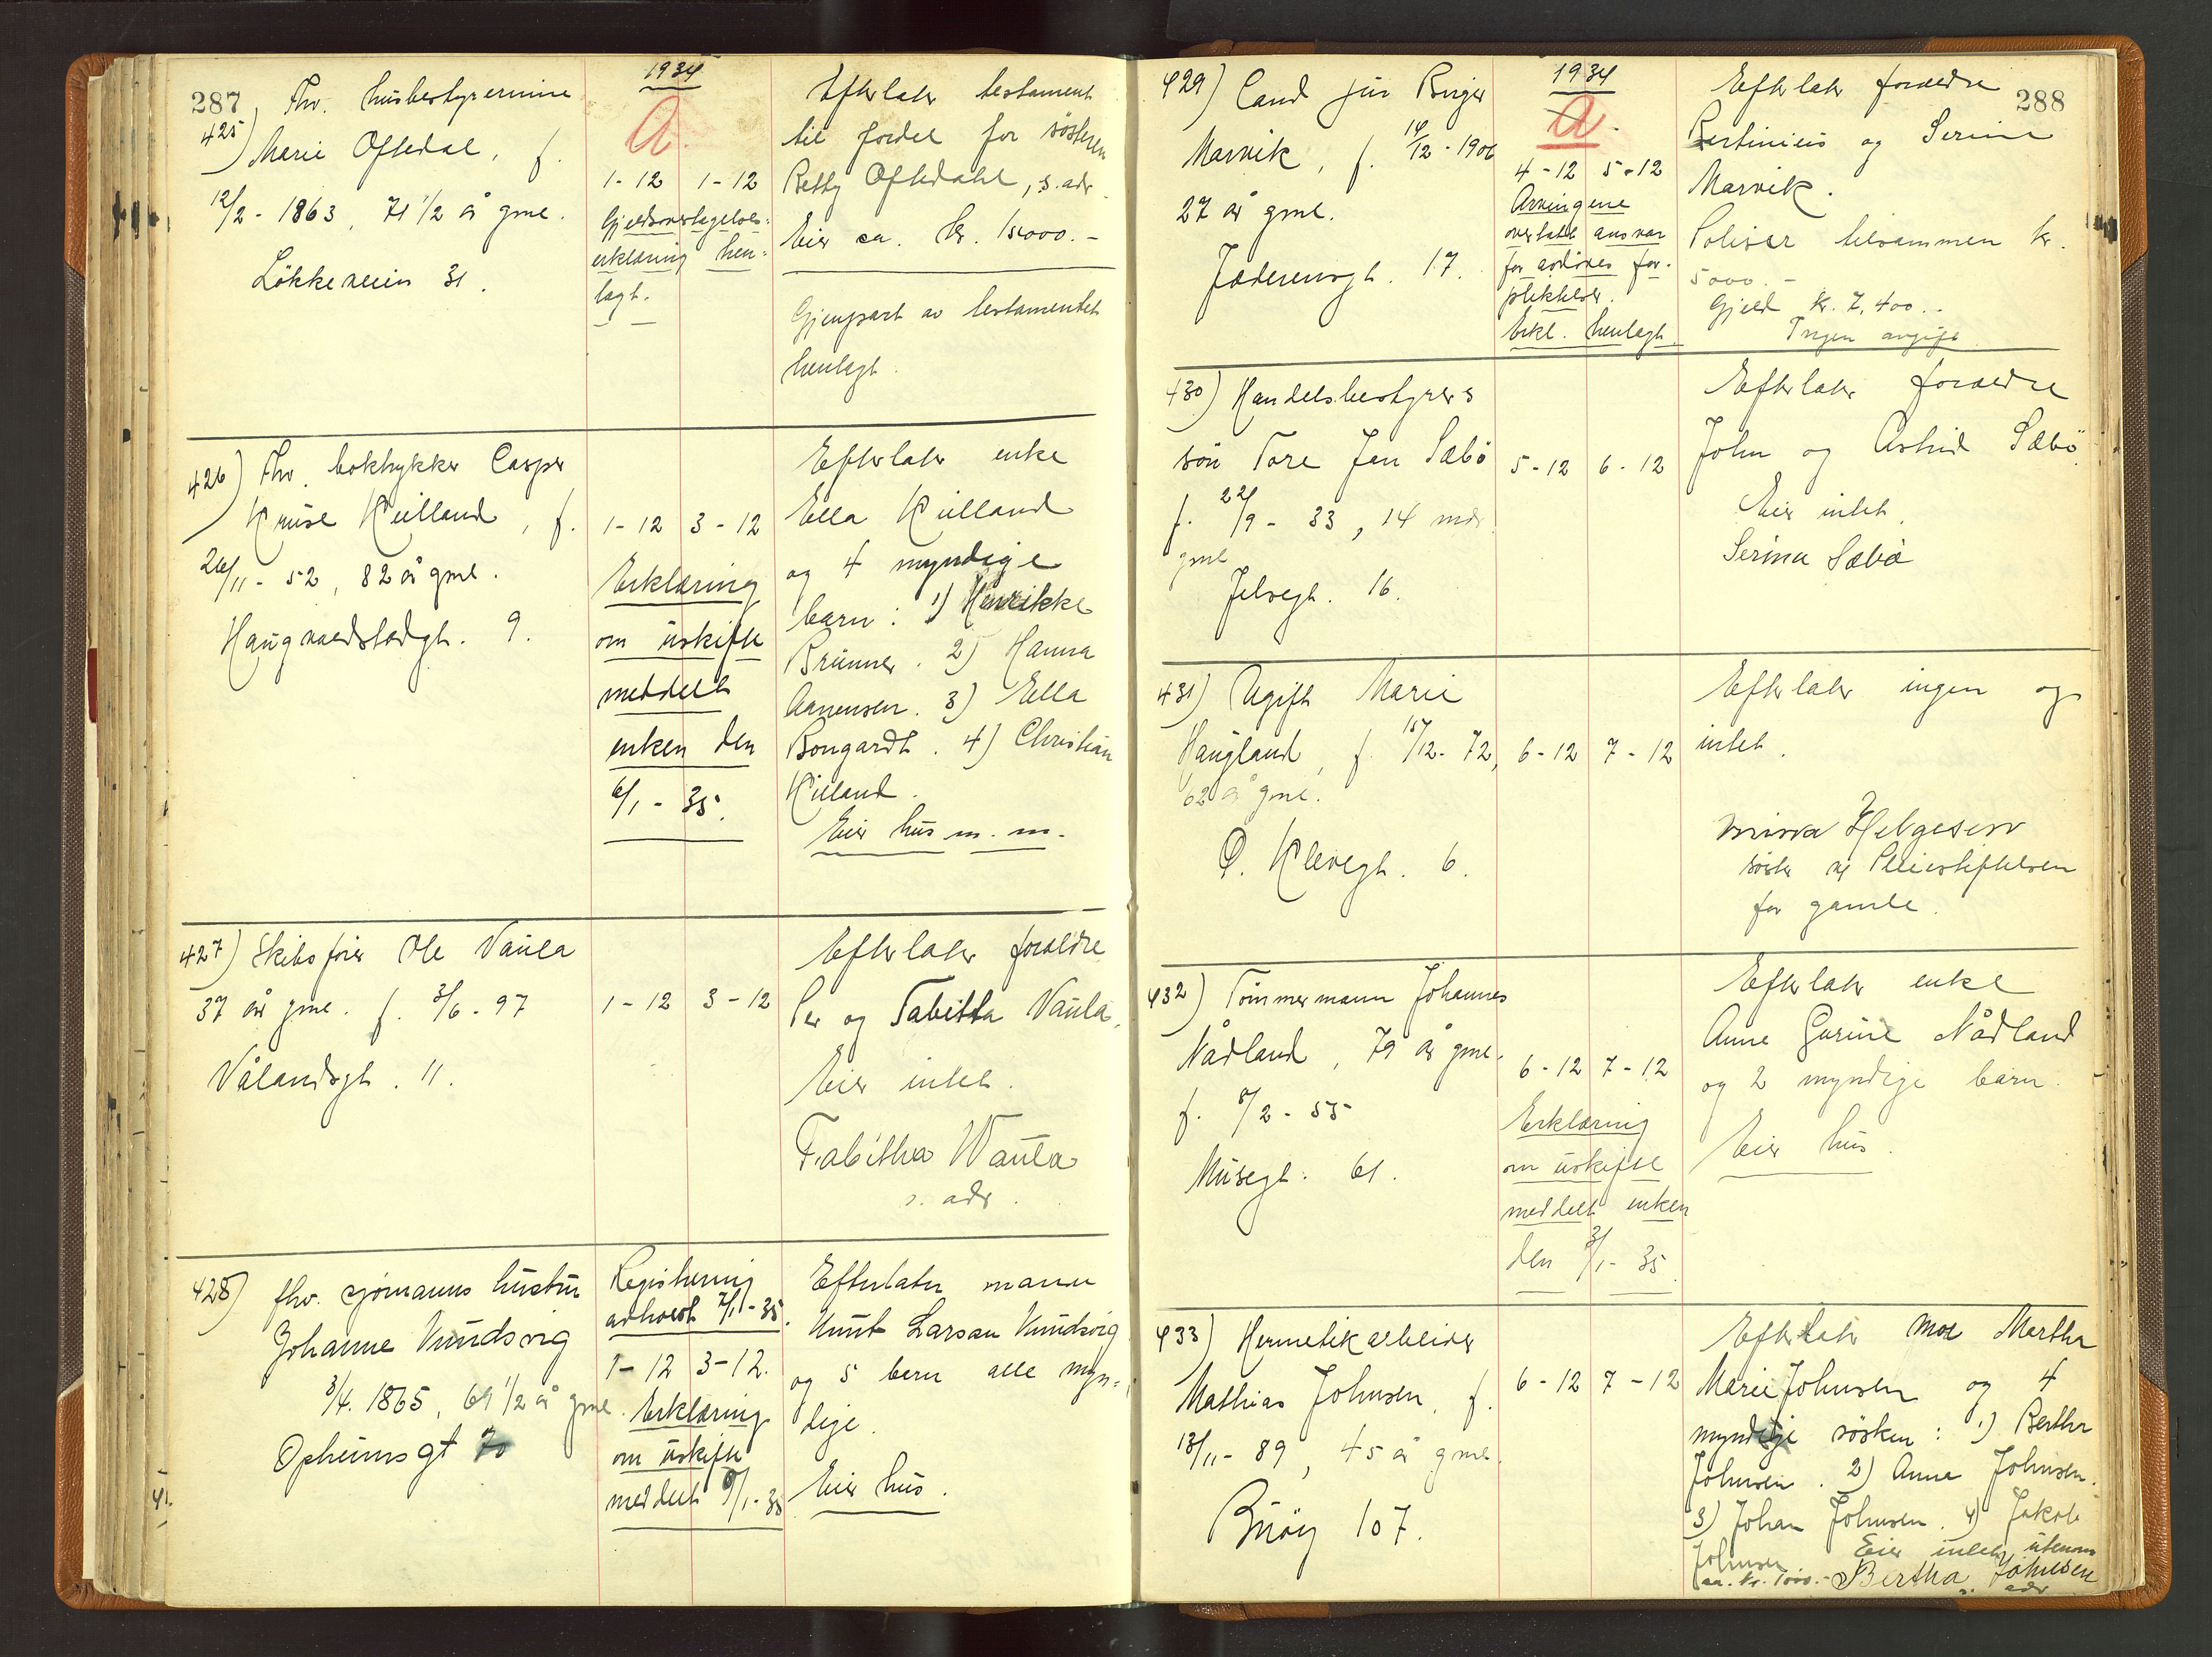 287
425) Fhv. husbestyrerinne
Marie Oftedal, f.
12/2 - 1863, 71 1/2 år gml.
Lökkeveien 31.
1934
A.
1-12 1-12
Gjeldsovertagelses-
erklæring hen-
lagt.
Efterlater testament
til fordel for søsteren
Betty Oftedahl, s. adr.
Eier ca. kr.
Gjenpart av testamentet
henlagt.
426) Fhv. boktrykker Casper
Kruse Kielland, f.
26/11 - 52, 82 år gml.
Haugvaldstadgt. 9.
1-12 3-12
Erklæring
om uskifte
meddelt
enken den
6/1 - 35.
Efterlater enke
Ella Kielland
og 4 myndige
barn: 1) Henrikke
Brunner. 2) Hanna
Aanensen. 3) Ella
Bongardt. 4) Christian
Kielland.
Eier hus m. m.
427) Skibsfører Ole Vaula
37 år gml. f. 3/6 - 97
Vålandsgt. 11.
1-12 3-12
Efterlater foreldre
Per og Tabitta Vaula.
Eier intet.
Tabitha Waula
s. adr.
428) fhv. sjømanns hustru
Johanne Vundsvig
3/4. 1865, 69 1/2 år gml.
Opheimsgt 70
Registrering
avholdt 7/1 - 35.
1-12 3-12.
Erklæring
om uskifte
meddelt 8/1 - 35
Efterlater mann
Knut Larsen Vundsvig
og 5 barn alle myn-
dige.
Eier hus.
288
429) Cand jur Birger
Marvik, f. 14/12 - 1906
27 år gml.
Jæderensgt. 17.
1934
A.
4-12 5-12
Arvingene
overtatt ansvar
for avdødes for-
pliktelser.
Erkl. henlagt.
Efterlater foreldre
Bertinius og Serine
Marvik.
Poliser tilsammen kr.
5000.-
Gjeld kr. 7,400.-
Ingen avgift
430) Handelsbestyrers
sön Tore Jan Sæbö
f. 22/9 - 33, 14 mdr
gml
Jelsegt. 16.
5-12 6-12
Efterlater foreldre
John og Astrid Sæbö.
Eier intet.
Serina Sæbö
431) Ugift Marie
Haugland, f. 15/12 - 72,
62 år gml.
Ö. Klevegt. 6.
6-12 7-12
Efterlater ingen og
intet.
Minna Helgesen
söster ved Pleiestiftelsen
for gamle.
432) Tömmermann Johannes
Nådland, 79 år gml.
f. 8/2 - 55
Musegt. 61.
6-12 7-12
Erklæring
om uskifte
meddelt enken
den 3/1 - 35.
Efterlater enke
Anne Gurine Nådland
og 2 myndige barn.
Eier hus.
433) Hermetikarbeider
Mathias Johnsen, f.
13/11 - 89, 45 år gml.
Buöy 107.
6-12 7-12
Efterlater mor Martha
Marie Johnsen og 4
myndige søsken: 1) Bertha
Johnsen. 2) Anne Johnsen.
3) Johan Johnsen. 4) Jakob
Johnsen Eier intet utenom
ca. kr. 1000.- Bertha Johnsen
s. adr